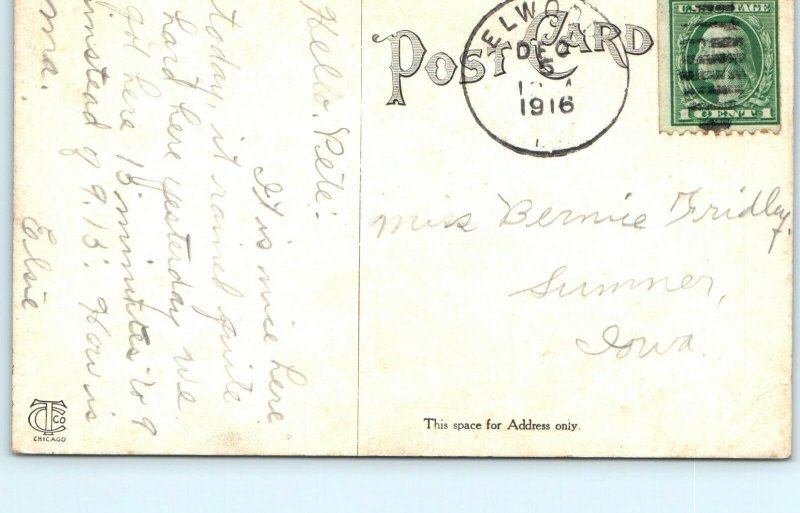 Hello, Pete:
It is nice here
today, it rained quite
hard here yesterday We
got here 15 minutes to 9
instead of 9.15. How is
ma.
Elsie
POST CARD
ELWO
DEC
5
1916
U.S. POSTAGE
1 CENT 1
Miss Bernice Fridley
Sumner,
Iowa.
This space for Address only.
CTCO
CHICAGO